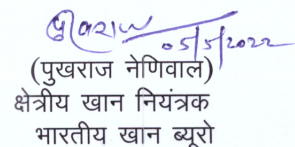 पुखराज
05/5/2022
(पुखराज नेणिवाल)
क्षेत्रीय खान नियंत्रक
भारतीय खान ब्यूरो